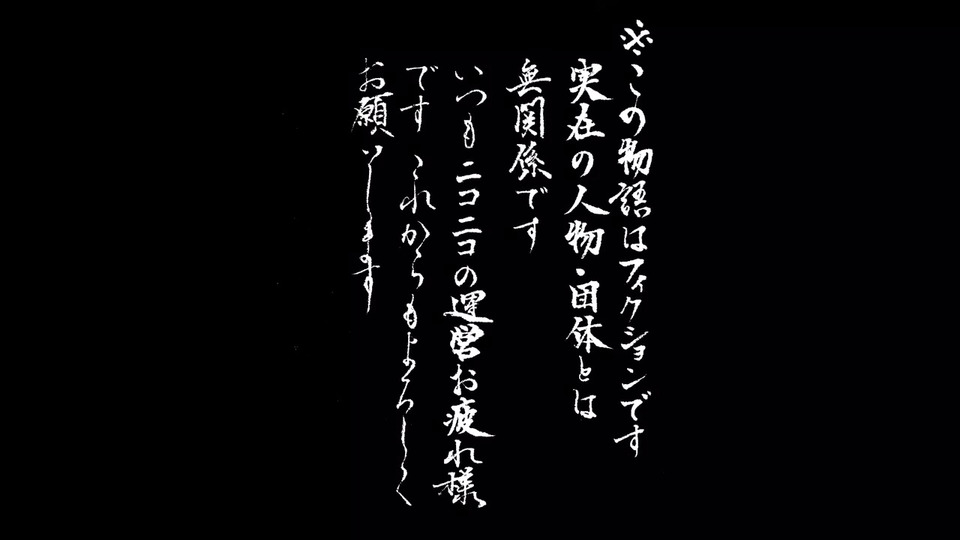 ※この物語はフィクションです
実在の人物・団体とは
無関係です
いつもニコニコの運営お疲れ様
です これからもよろしく
お願いします